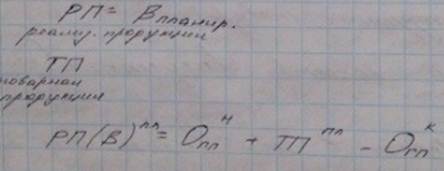 РП = Впланир.
реализ. продукции
ТП
товарная
продукция
РП(В)ᵖᵖ = Опп ᴴ + ТП ᵖᵖ - Огп ᴷ